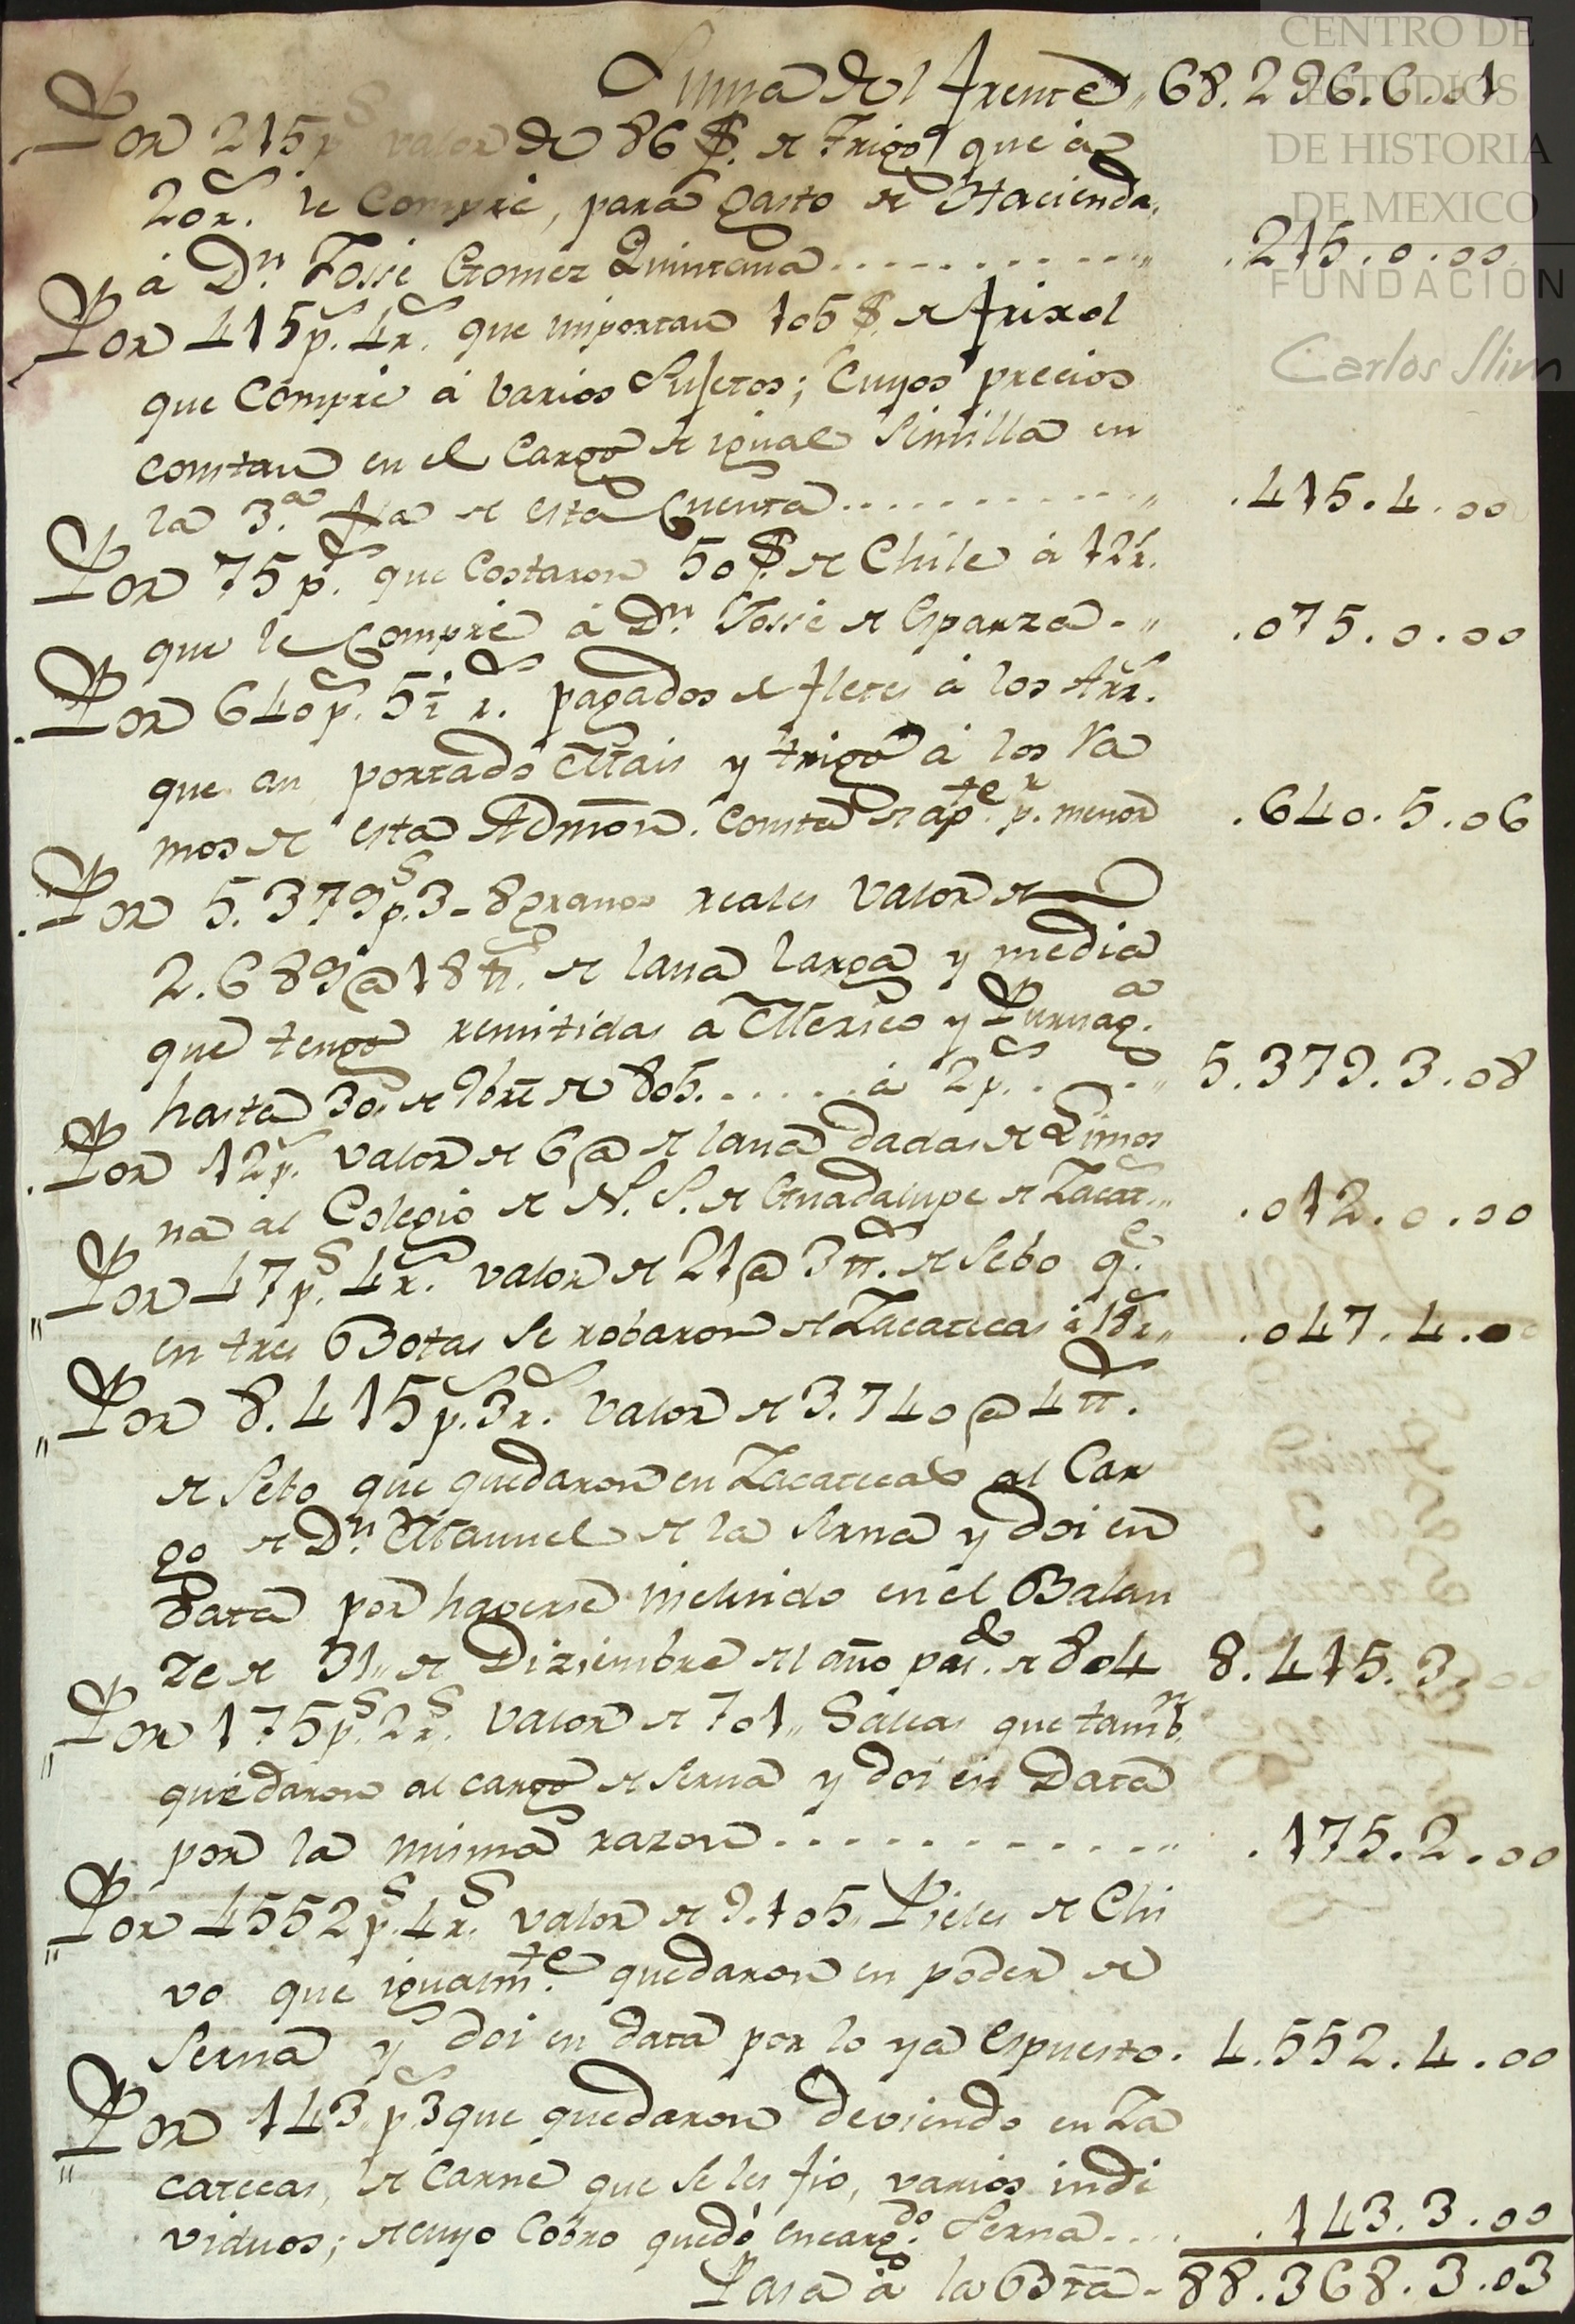 CENTRO DE
ESTUDIOS
DE HISTORIA
DE MEXICO
FUNDACIÓN
Carlos Slim
Suma del frente,, 68.296.6.01
Por 215p.s valor de 86 F. de trigo que à
20r.s le compré, para gasto de Hacienda,
à D.n Josse Gomez Quintana..........,, .215.0.00
Por 415p.s 4r.s que importan 105 F. de frixol
que compré à varios Sujetos; Cuyos precios
constan en el Cargo de igual Semilla en
la 3.a fxa de esta Cuenta..........,, .415.4.00
Por 75p.s que Costaron 50 F. de Chile à 12r.s
que le Compré à D.n Josse de Esparza.,, .075.0.00
.Por 640p.s 5½ r.s pagados de fletes à los Arr.s
que an portado Mais y trigo à los Ra
mos de esta Admon. consta de ap.te p.r menor .640.5.06
.Por 5.379p.s 3-8 granos reales valor de
2.689@18 tt.s de lana larga y media
que tengo remitidas a Mexico y Puruag.a
hasta 30,, de 9bre de 805.......à 2p.s...,, 5.379.3.08
.Por 12p.s valor de 6@ de lana dadas de Limos
na al Colegio de N. S. de Guadalupe de Zacat.s,, .012.0.00
,,Por 47p.s 4r.s valor de 21@ 3 tt.s de Sebo q.e
en tres Botas se robaron de Zacatecas à 18r.s,, .047.4.00
,,Por 8.415p.s 3r.s valor de 3.740@ 4 tt.s
de Sebo que quedaron en Zacatecas al Car
go de D.n Manuel de la Serna y doi en
Data por haverse incluido en el Balan
ze de 31,, de Diziembre del año pas.do de 804 8.415.3.00
,,Por 175p.s 2r.s valor de 701,, Saleas que tamb.n
quedaron al cargo de Serna y doi en Data
por la misma razon............,, .175.2.00
,,Por 4552p.s 4r.s valor de 9.105,, Pieles de Chi
vo que igualm.te quedaron en poder de
Serna y doi en data por lo ya espuesto. 4.552.4.00
,,Por 143,, p.s 3 que quedaron deviendo en Za
catecas, de Carne que se les fio, varios indi
viduos; de cuyo Cobro quedó encarg.do Serna.... .143.3.00
Pasa à la Bta- 88.368.3.03